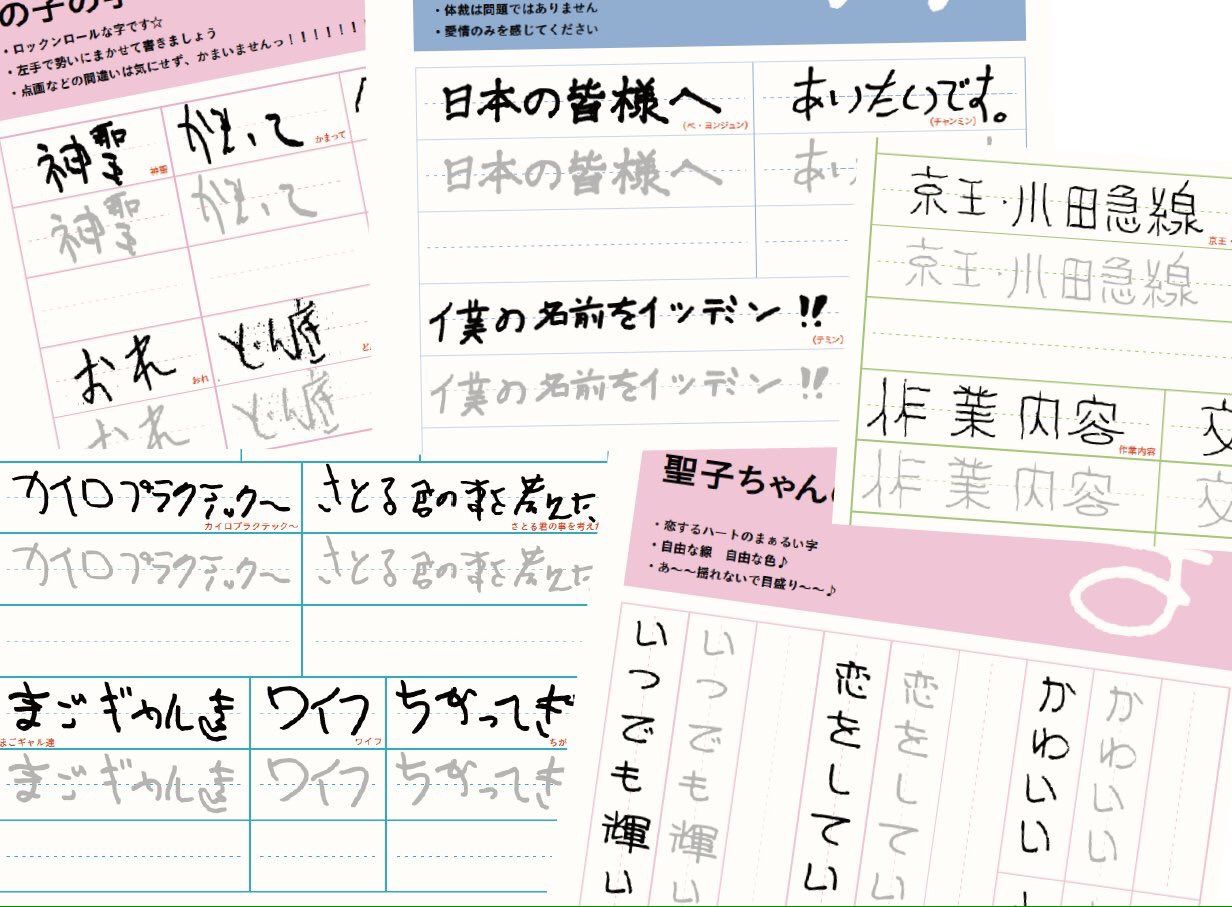 の子の
・ロックンロールな字です☆
・左手で勢いにまかせて書きましょう
・点画などの間違いは気にせず、かまいませんっ!!!!!!
神聖
神聖
かまって
かまって
神聖
かまって
おれ
おれ
おれ
・体裁は問題ではありません
・愛情のみを感じてください
日本の皆様へ
(ペ・ヨンジュン)
あいたいです。
(チャンミン)
日本の皆様へ
あい
僕の名前をイッデミン!!
(テミン)
僕の名前をイッデミン!!
京王・小田急線
京王・
京王・小田急線
作業内容
作業内容
交
作業内容
交
カイロプラクテック〜
カイロプラクテック〜
さとる君の事を考えた
さとる君の事を考えた
カイロプラクテック〜
さとる君の事を考えた
まごギャル達
まごギャル達
ワイフ
ワイフ
ちがってき
ちが
まごギャル達
ワイフ
ちがってき
聖子ちゃん
・恋するハートのまぁるい字
・自由な線　自由な色♪
・あ〜〜揺れないで目盛り〜〜♪
いつでも輝い
いつでも輝い
恋をしてい
恋をしてい
かわいい
かわいい